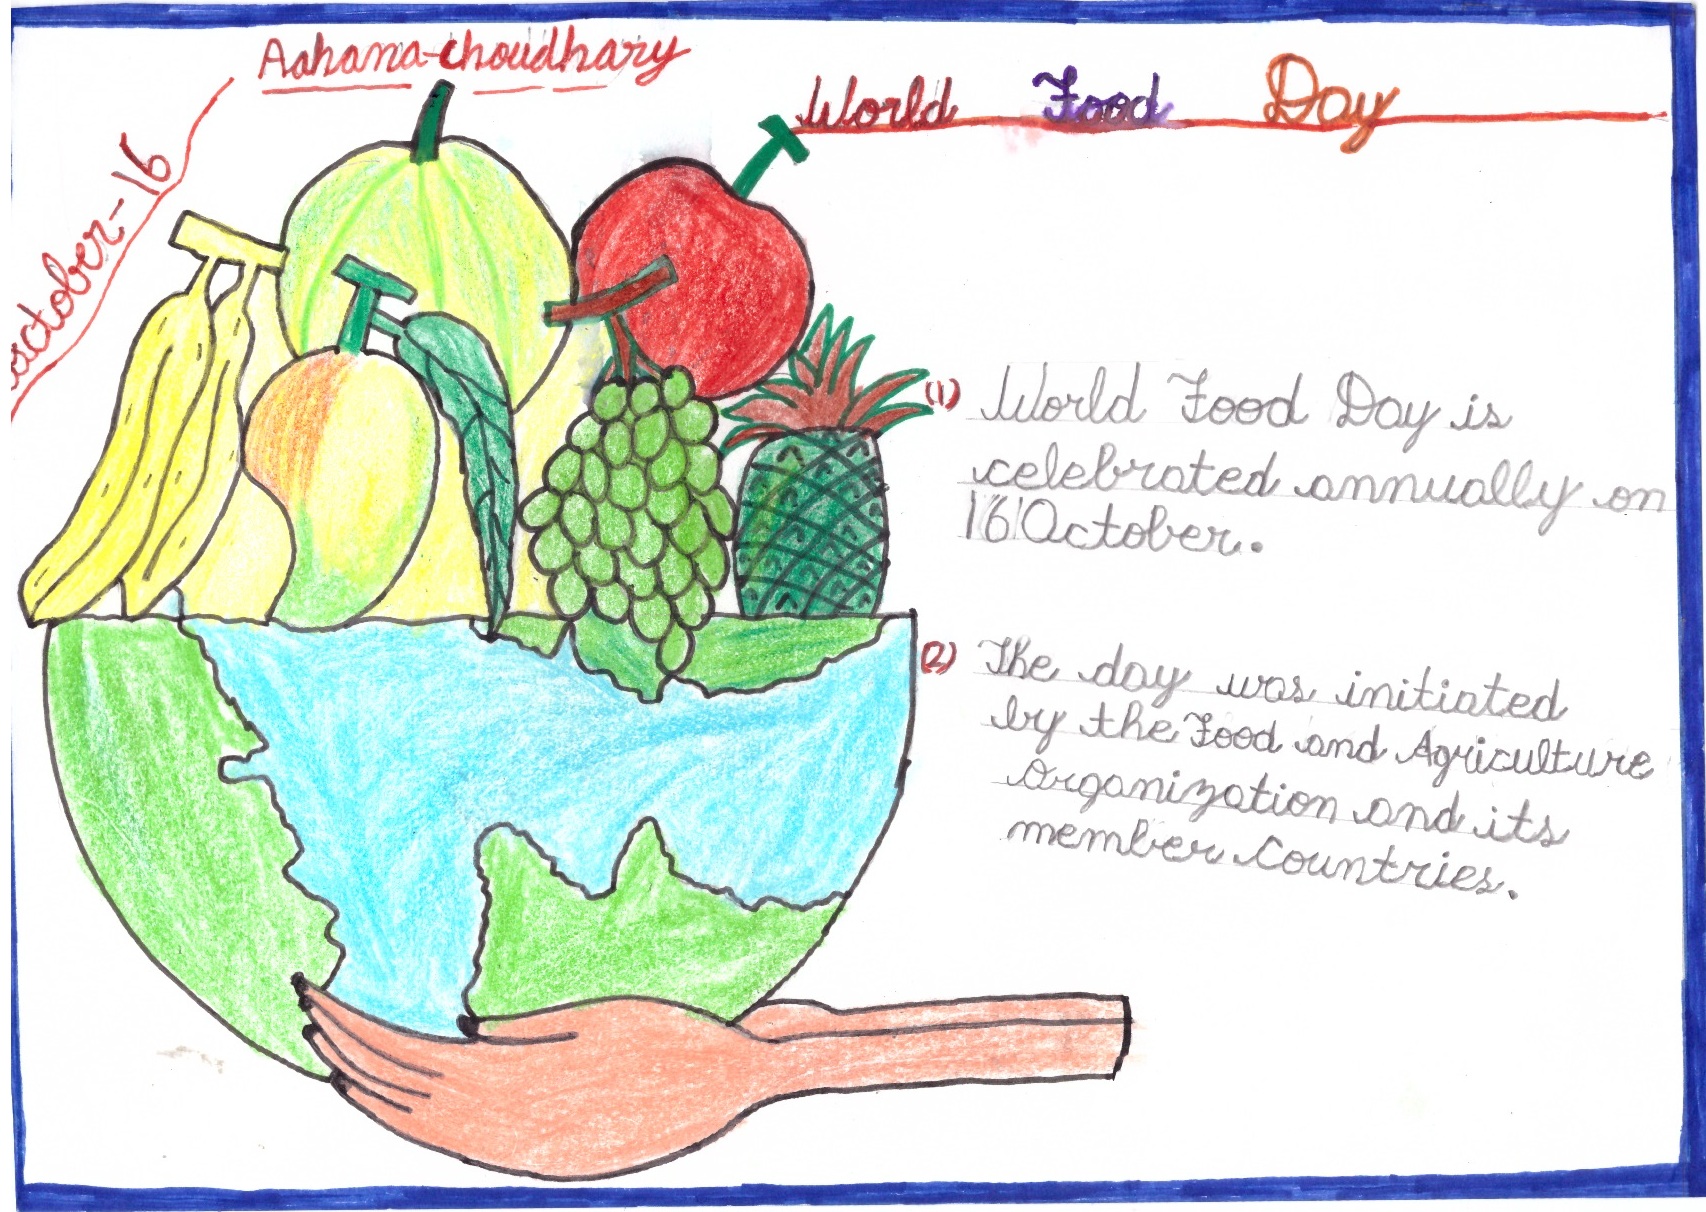 Aahana-choudhary
World Food Day
october-16
(1) World Food Day is
celebrated annually on
16 October.
(2) The day was initiated
by the Food and Agriculture
Organization and its
member Countries.